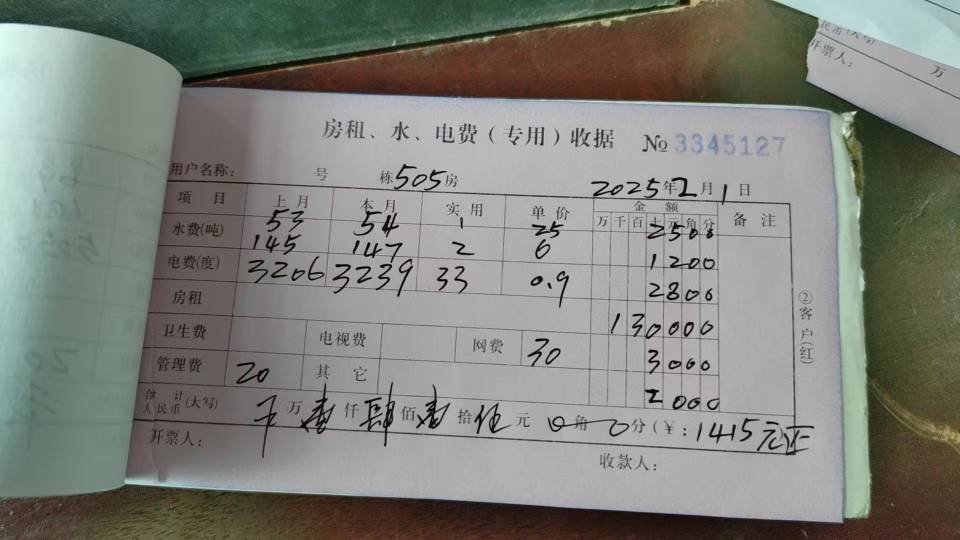 民币(大写)
开票人:
万
房租、水、电费(专用)收据 № 3345127
用户名称: 号 栋505房 2025年2月1日
项目 上月 本月 实用 单价 金额 备注
万千百十元角分
水费(吨) 53 54 1 25 2500
145 147 2 6 1200
电费(度) 3206 3239 33 0.9 2800
房租 130000
卫生费 电视费 网费 30 3000
管理费 20 其它 2000
合计人民币(大写) 万壹仟肆佰壹拾伍元0角0分(¥:1415元正
开票人: 收款人:
②客户(红)